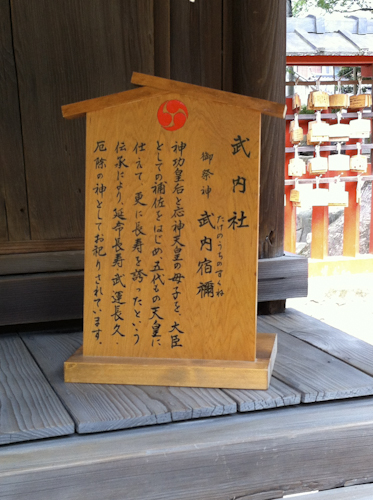 武内社
御祭神 武内宿禰
たけのうちのすくね
神功皇后と応神天皇の母子を、大臣
としての補佐をはじめ、五代もの天皇に
仕えて、更に長寿を誇ったという
伝承により、延命長寿、武運長久
厄除の神としてお祀りされています。